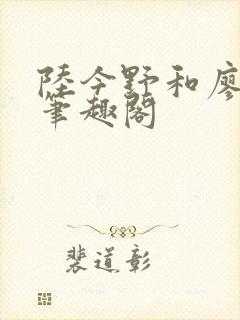 陸今野和廖
筆趣閣
裴道彰